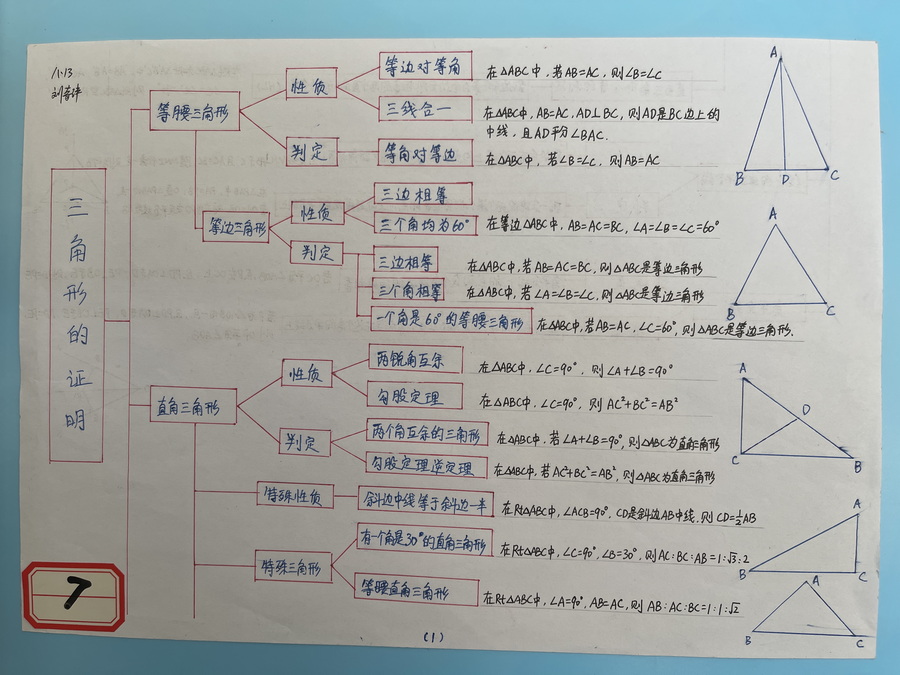 11.13
三角形的证明
等腰三角形
性质
等边对等角
在△ABC中,若AB=AC,则∠B=∠C
三线合一
在△ABC中,AB=AC,AD⊥BC,则AD是BC边上的
中线,且AD平分∠BAC.
判定
等角对等边
在△ABC中,若∠B=∠C,则AB=AC
A
B D C
等边三角形
性质
三边相等
三个角均为60°
在等边△ABC中,AB=AC=BC,∠A=∠B=∠C=60°
判定
三边相等
在△ABC中,若AB=AC=BC,则△ABC是等边三角形
三个角相等
在△ABC中,若∠A=∠B=∠C,则△ABC是等边三角形
一个角是60°的等腰三角形
在△ABC中,若AB=AC,∠C=60°,则△ABC是等边三角形.
A
B C
直角三角形
性质
两锐角互余
在△ABC中,∠C=90°,则∠A+∠B=90°
勾股定理
在△ABC中,∠C=90°,则AC²+BC²=AB²
判定
两个角互余的三角形
在△ABC中,若∠A+∠B=90°,则△ABC为直角三角形
勾股定理逆定理
在△ABC中,若AC²+BC²=AB²,则△ABC为直角三角形
A
D
C B
特殊性质
斜边中线等于斜边一半
在Rt△ABC中,∠ACB=90°.CD是斜边AB中线.则CD=½AB
特殊三角形
有一个角是30°的直角三角形
在Rt△ABC中,∠C=90°,∠B=30°,则AC:BC:AB=1:√3:2
A
B C
等腰直角三角形
在Rt△ABC中,∠A=90°,AB=AC,则AB:AC:BC=1:1:√2
A
B C
7
(1)